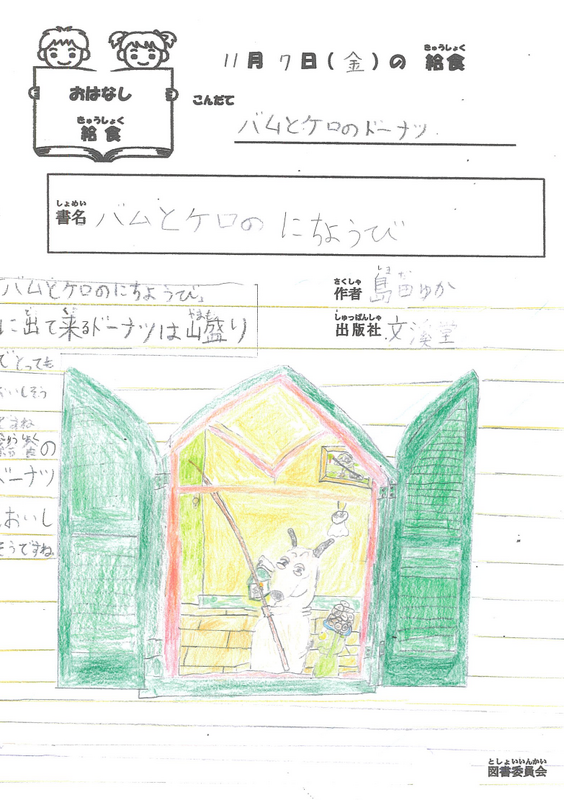 11月7日(金)の給食
きゅうしょく
おはなし
きゅうしょく
給食
こんだて
バムとケロのドーナツ
しょめい
書名 バムとケロの にちようび
さくしゃ しま だ
作者 島田ゆか
しゅっぱんしゃ
出版社 文溪堂
バムとケロのにちようび」
に出て来るドーナツは山盛り
でとっても
おいしそう
ですね
きゅうしょく
給食の
ドーナツ
おいし
そうですね
としょいいんかい
図書委員会